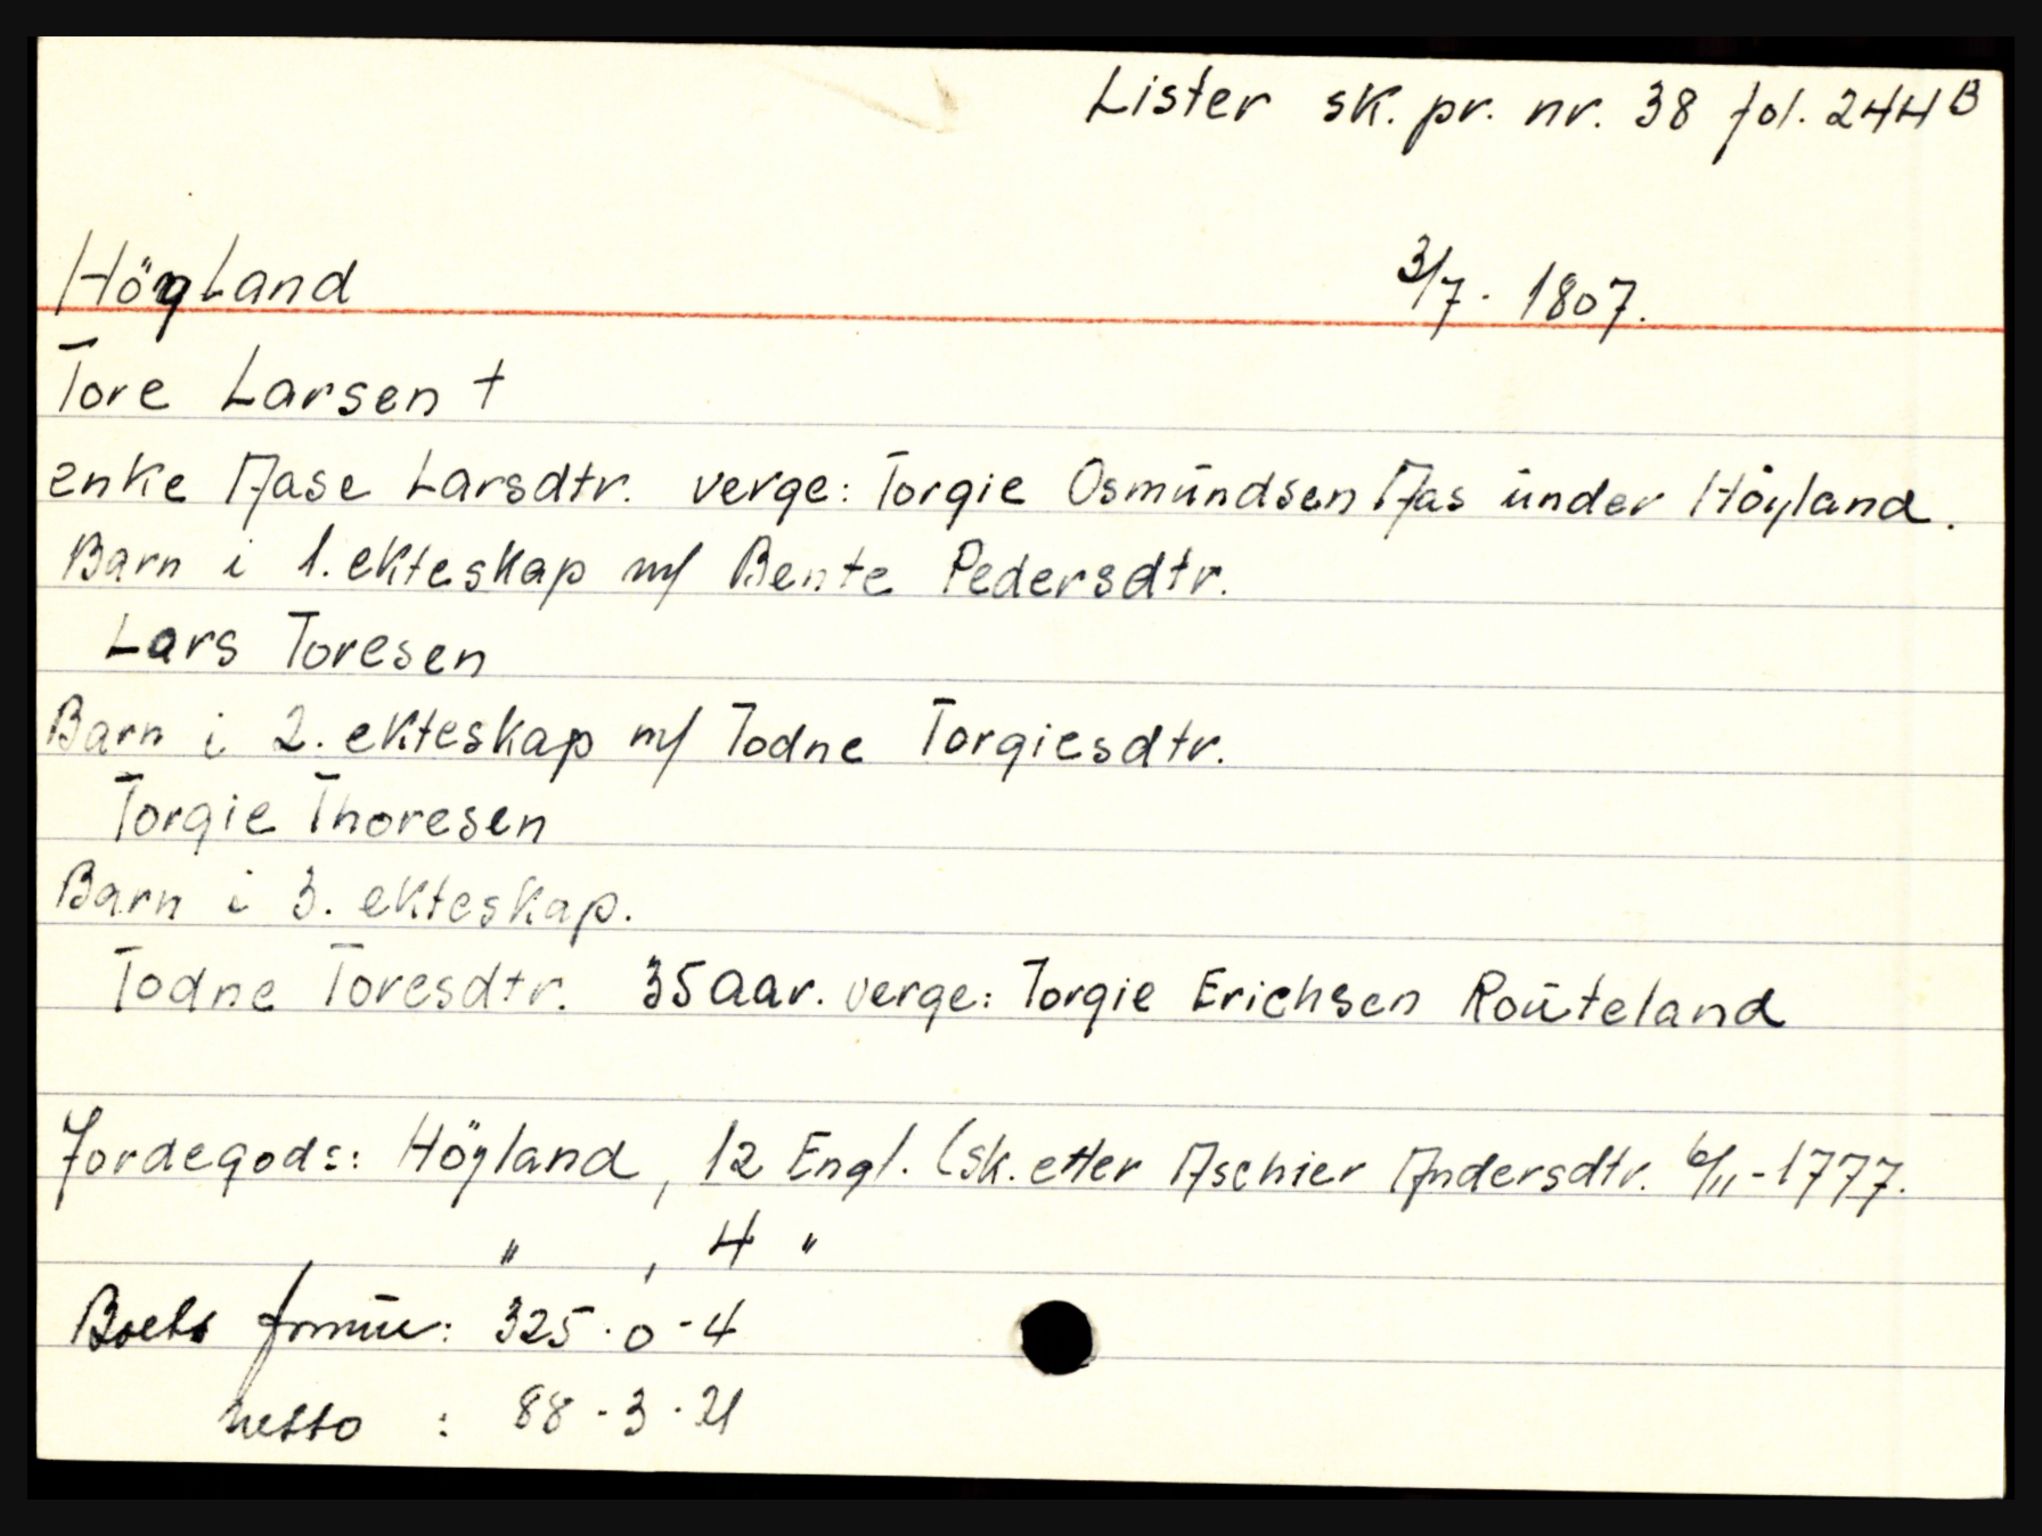 Lister sk. pr. nr. 38 fol. 244 B
Höyland 3/7. 1807.
Tore Larsen †
enke Aase Larsdtr. verge: Torgie Osmundsen Aas under Höyland.
Barn i 1. ekteskap m/ Bente Pedersdtr.
Lars Toresen
Barn i 2. ekteskap m/ Todne Torgiesdtr.
Torgie Thoresen
Barn i 3. ekteskap.
Todne Toresdtr. 35 aar. verge: Torgie Erichsen Routeland
Jordegods: Höyland, 12 Engl. (sk. etter Aschier Andersdtr. 6/11-1777.
" , 4 "
Boets formue: 325 - 0 - 4
netto : 88 - 3 - 21